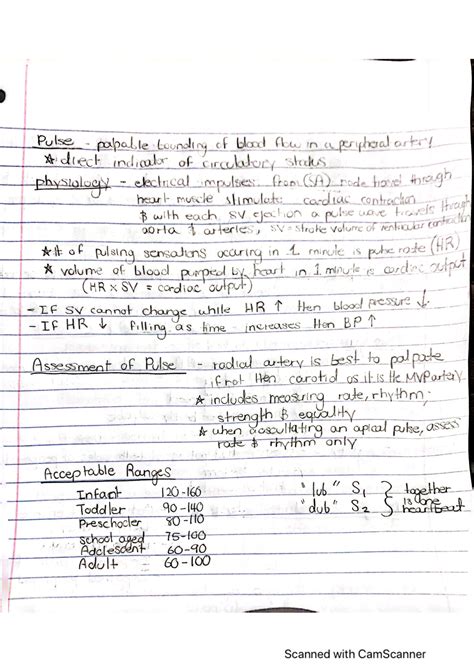 Pulse - palpable bounding of blood flow in a peripheral artery
* direct indicator of circulatory status
physiology - electrical impulses from (SA) node travel through
heart muscle stimulate cardiac contraction
& with each SV ejection a pulse wave travels through
aorta & arteries, SV = stroke volume of ventricular contraction
* # of pulsing sensations occuring in 1 minute is pulse rate (HR)
* volume of blood pumped by heart in 1 minute is cardiac output
(HR x SV = cardiac output)
- If SV cannot change while HR ↑ then blood pressure ↓
- If HR ↓ filling as time increases then BP ↑
Assessment of Pulse - radial artery is best to palpate
if not then carotid as it is the MVP artery
* includes measuring rate, rhythm,
strength & equality
* when auscultating an apical pulse, assess
rate & rhythm only
Acceptable Ranges
Infant 120-160 "lub" S1 } together
Toddler 90-140 "dub" S2 } is one
Preschooler 80-110 heartbeat
school aged 75-100
Adolescent 60-90
Adult - 60-100
Scanned with CamScanner